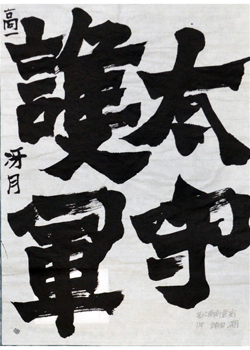 太守
護軍
高一 冴月